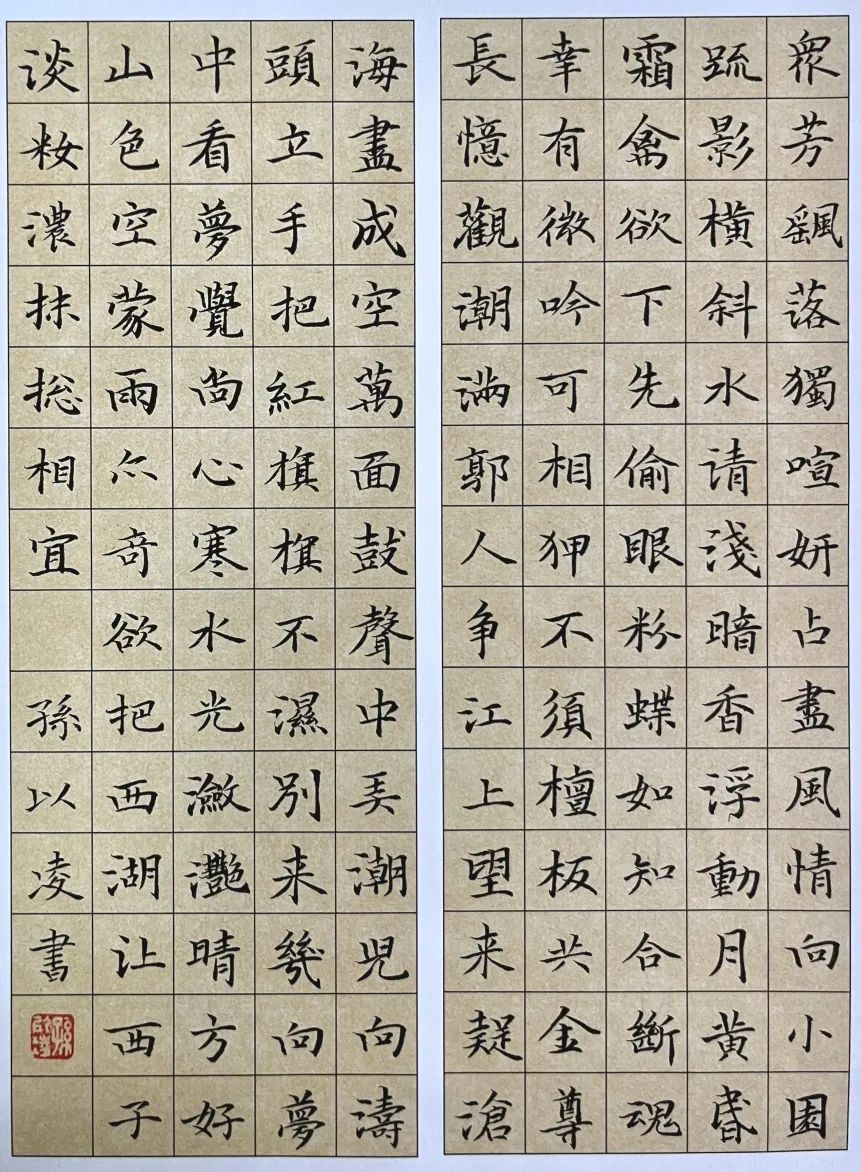 衆芳颻落獨喧妍占盡風情向小園
䟽影橫斜水请淺暗香浮動月黄昏
霜禽欲下先偷眼粉蝶如知合斷魂
幸有微吟可相狎不須檀板共金尊
長憶觀潮滿郭人争江上望来疑滄
海盡成空萬面鼓聲中弄潮児向濤
頭立手把紅旗旗不濕別来幾向夢
中看夢覺尚心寒水光瀲灧晴方好
山色空蒙雨亦奇欲把西湖让西子
淡籹濃抹揔相宜 孫以凌書